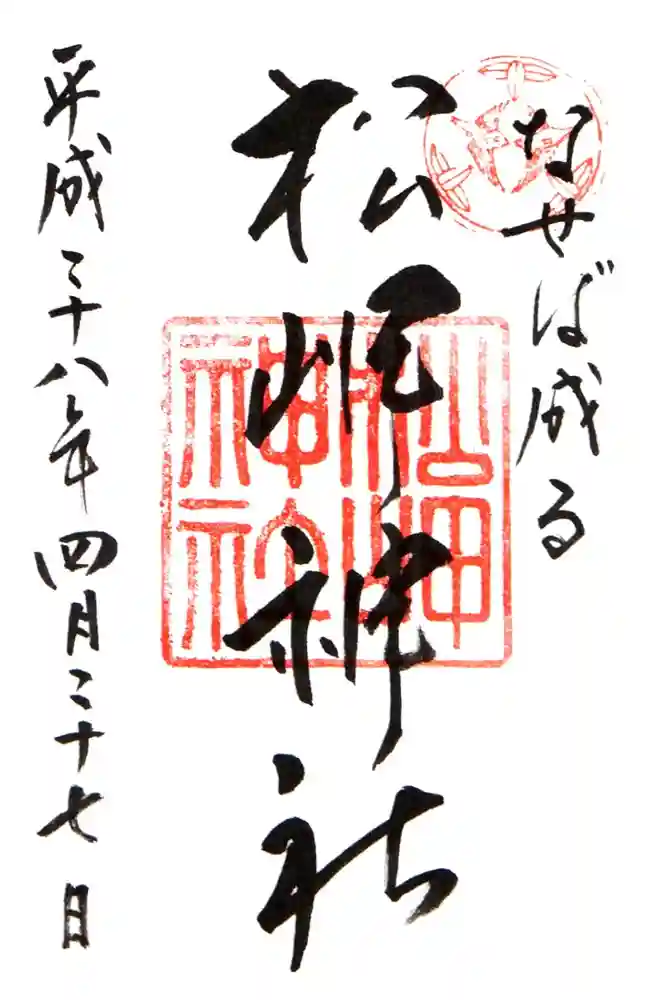 なせば成る
松岬神社
松岬神社
平成二十八年四月二十七日